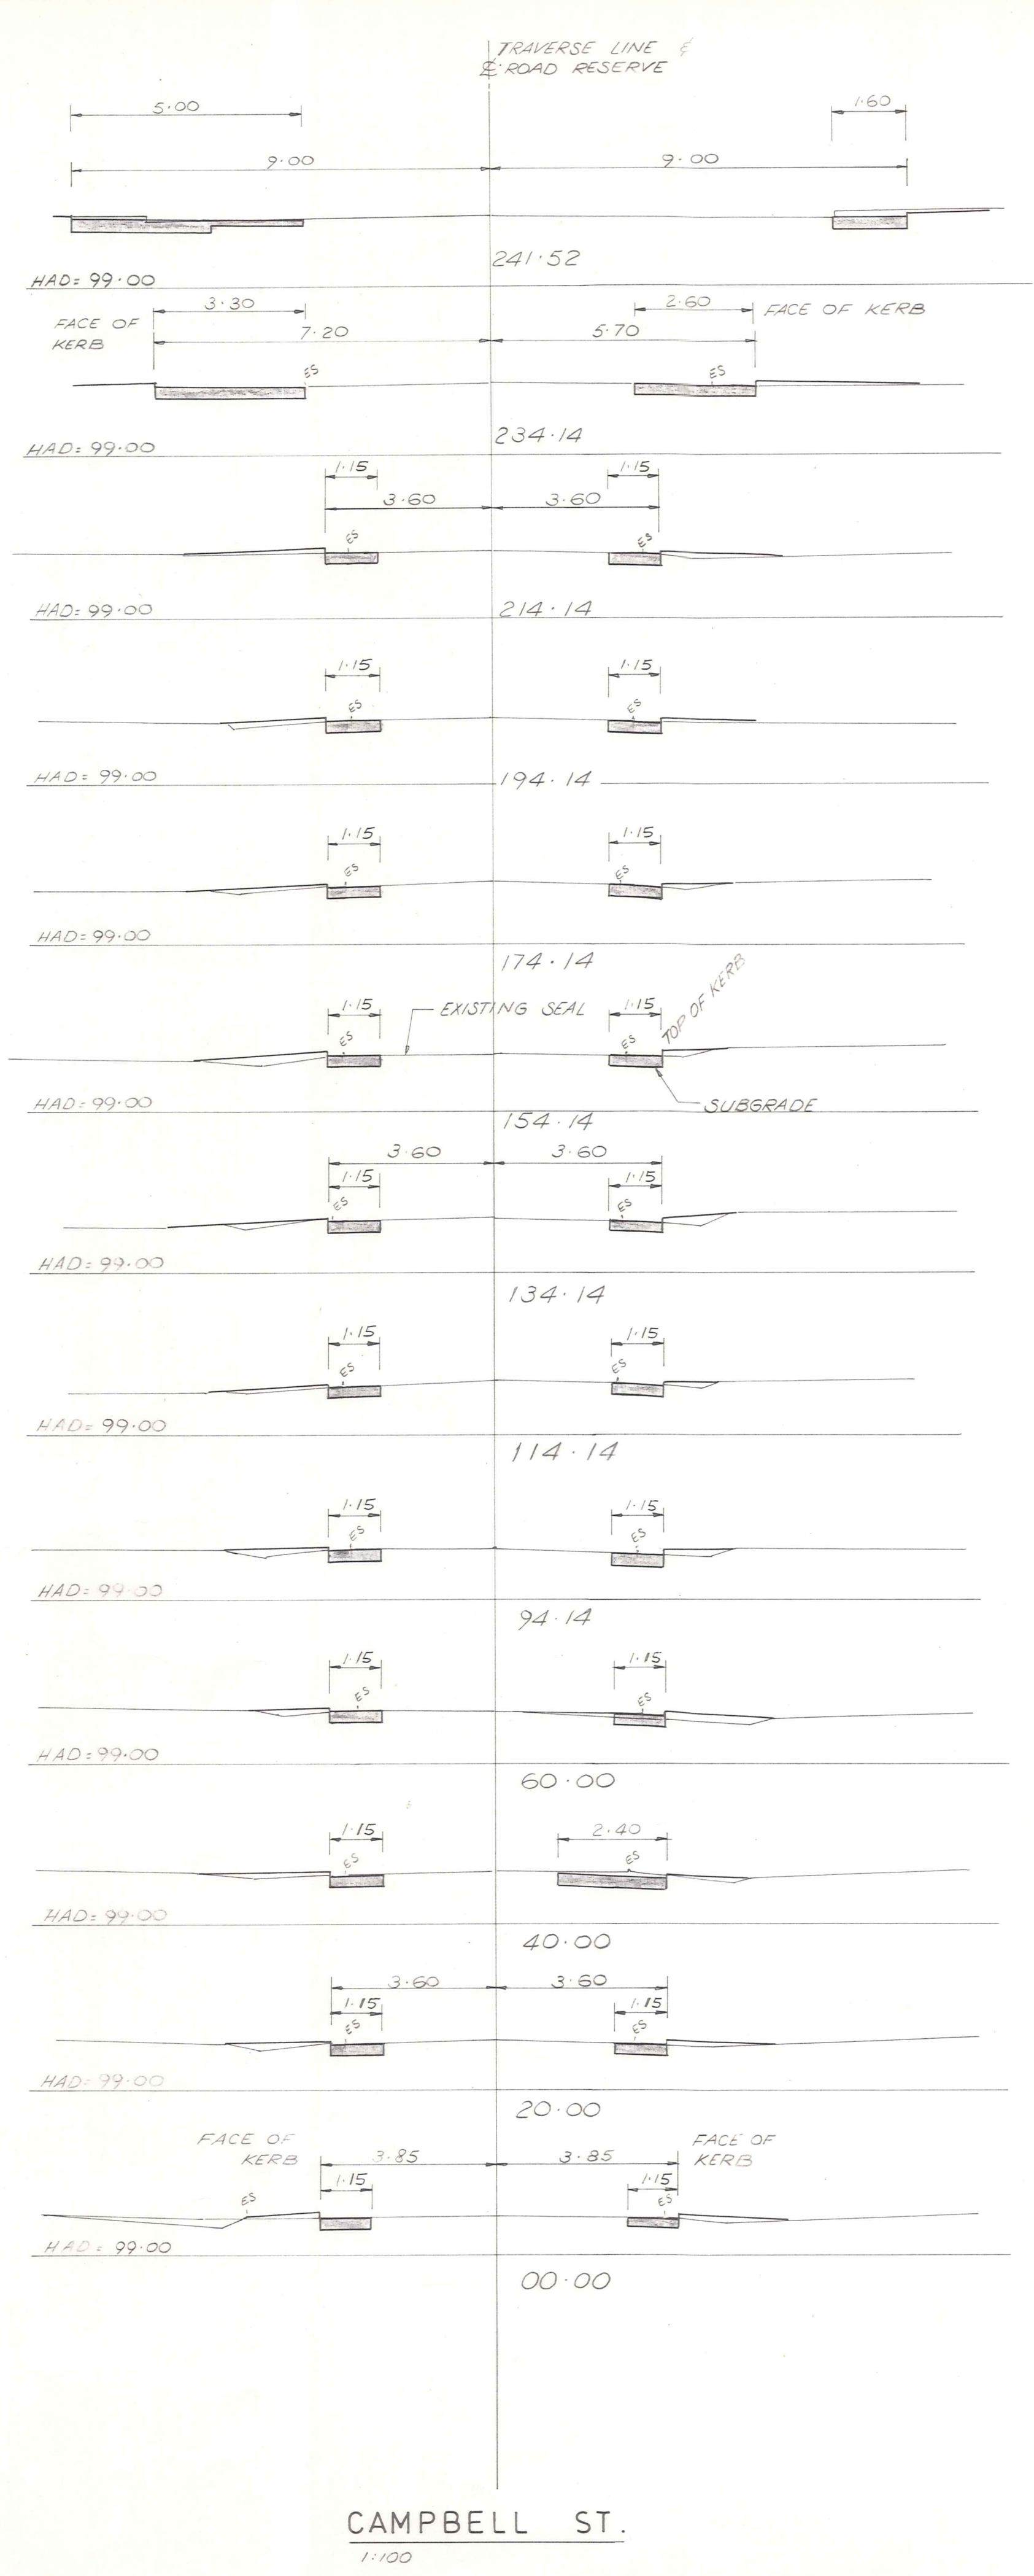 TRAVERSE LINE &
℄ ROAD RESERVE
5·00
1·60
9·00 9·00
241·52
HAD= 99·00
3·30
2·60 FACE OF KERB
FACE OF
KERB
7·20 5·70
ES ES
234·14
HAD= 99·00
1·15 1·15
3·60 3·60
ES ES
HAD= 99·00 214·14
1·15 1·15
ES ES
HAD= 99·00 194·14
1·15 1·15
ES ES
HAD= 99·00
174·14
1·15 EXISTING SEAL 1·15 TOP OF KERB
ES ES
HAD= 99·00 SUBGRADE
154·14
3·60 3·60
1·15 1·15
ES ES
HAD= 99·00
134·14
1·15 1·15
ES ES
HAD= 99·00
114·14
1·15 1·15
ES ES
HAD= 99·00
94·14
1·15 1·15
ES ES
HAD= 99·00
60·00
1·15 2·40
ES ES
HAD= 99·00
40·00
3·60 3·60
1·15 1·15
ES ES
HAD= 99·00
20·00
FACE OF
KERB
3·85 3·85
FACE OF
KERB
1·15 1·15
ES ES
HAD= 99·00
00·00
CAMPBELL ST.
1:100